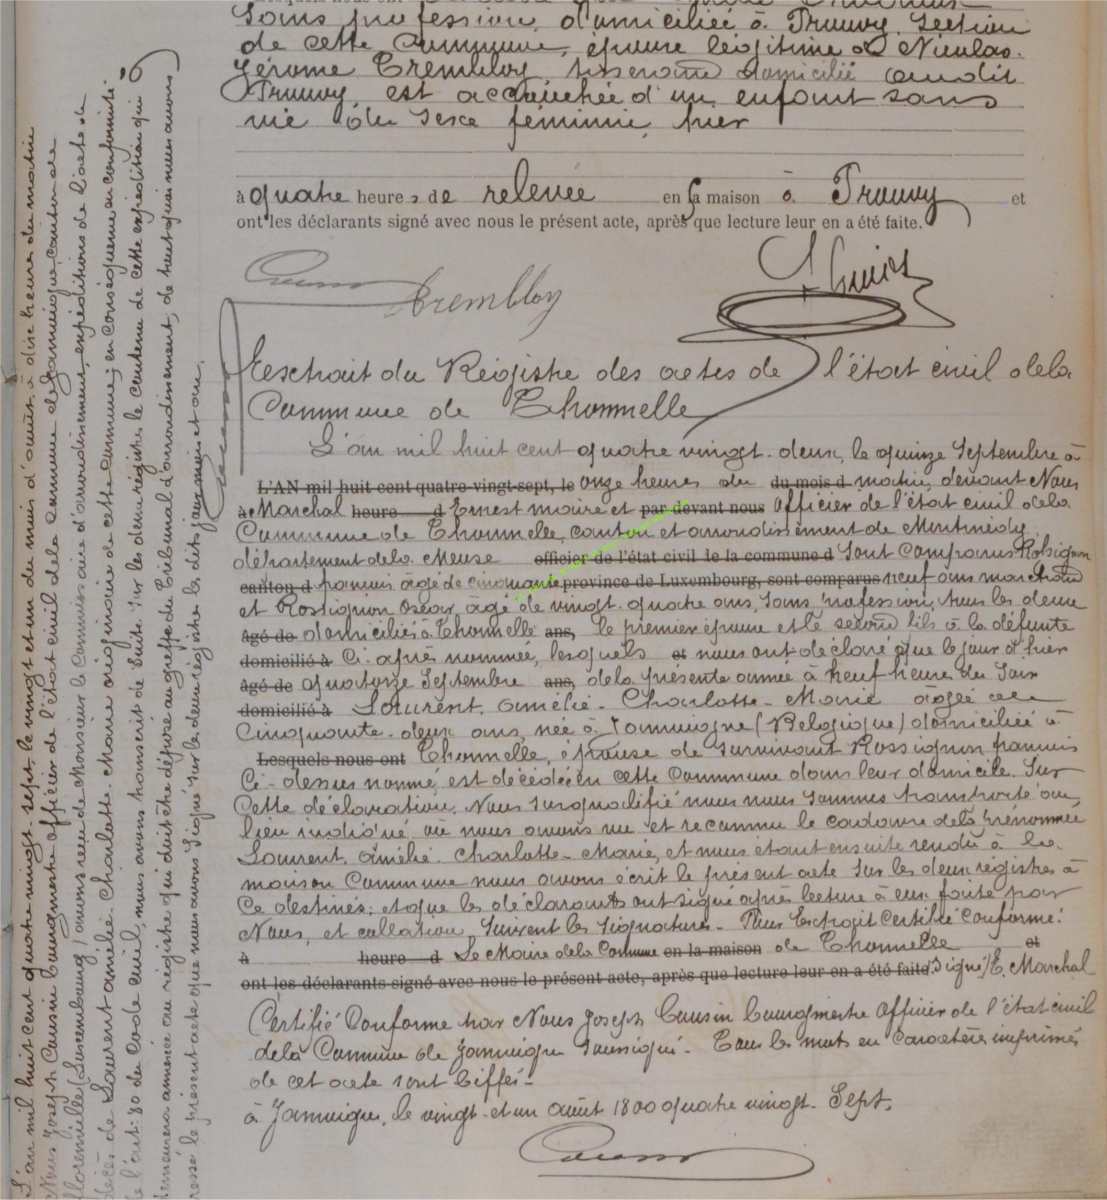 sans profession, domiciliée à Prouvy, section
de cette Commune, épouse légitime de Nicolas
Jérôme Trembloy, domicilié audit
Prouvy, est accouchée d'un enfant sans
vie du sexe féminin, hier
à quatre heures de relevée en sa maison à Prouvy et
ont les déclarants signé avec nous le présent acte, après que lecture leur en a été faite.
Trembloy
Extrait du Régistre des actes de l'état civil de la
Commune de Thonnelle
L'an mil huit cent quatre vingt-deux, le quinze Septembre à
L'AN mil huit cent quatre-vingt-sept, le onze heures du du mois d matin, devant Nous
à Marchal heure d Ernest maire et par devant nous Officier de l'état civil de la
Commune de Thonnelle, canton et arrondissement de Montmédy
département de la Meuse officier de l'état civil de la commune d sont comparus Rossignon
canton d francois âgé de cinquante province de Luxembourg, sont comparus neuf ans marchand
et Rossignon Oscar, âgé de vingt-quatre ans, sans profession, tous les deux
âgé de domiciliés à Thonnelle ans, le premier époux et le second fils à la défunte
domicilié à Ci-après nommée, lesquels et nous ont déclaré que le jour d'hier
âgé de quatorze Septembre ans, de la présente année à neuf heures du soir
domicilié à Laurent Amélie-Charlotte-Marie âgée de
Cinquante-deux ans, née à Jamoigne (Belgique) domiciliée à
Lesquels nous ont Thonnelle, épouse de survivant Rossignon francois
Ci-dessus nommé, est décédée en cette Commune dans leur domicile. Sur
Cette déclaration, Nous susqualifié nous nous sommes transporté au
lieu indiqué où nous avons vu et reconnu le cadavre de la prénommée
Laurent Amélie-Charlotte-Marie, et nous étant ensuite rendu à la
maison Commune nous avons écrit le présent acte sur les deux régistres à
Ce destinés; et que les déclarants ont signé après lecture à eux faite par
Nous, et collation, suivent les signatures. Pour Extrait Certifié Conforme:
à heure d Le Maire de la Commune en la maison de Thonnelle et
ont les déclarants signé avec nous le présent acte, après que lecture leur en a été faite (signé) E. Marchal
Certifié Conforme par Nous Joseph Causin bourgmestre Officier de l'état civil
de la Commune de Jamoigne soussigné. Tous les mots en caractères imprimés
de cet acte sont biffés.
à Jamoigne, le vingt-et-un août 1800 quatre vingt-Sept.
L'an mil huit cent quatre vingt-sept, le vingt et un du mois d'août à dix heures du matin
Nous Joseph Causin bourgmestre officier de l'état civil de la commune de Jamoigne, canton de
florenville (Luxembourg) avons reçu de Monsieur le Commissaire d'arrondissement, expéditions de l'acte de
décès de Laurent Amélie-Charlotte-Marie originaire de cette commune; en conséquence en conformité
de l'art: 80 du Code civil, nous avons transcrit de suite sur les deux régistres le contenu de cette expédition qui
demeurera annexée au régistre qui doit être déposé au greffe du tribunal d'arrondissement, de tout quoi nous avons
ressé le présent acte que nous avons signé sur les deux régistres les dits jour mois et an.